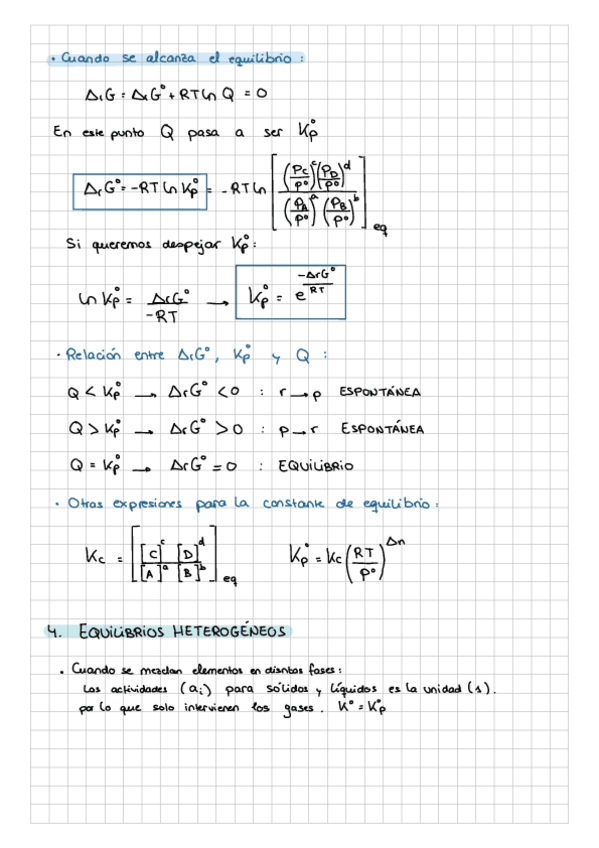 · Cuando se alcanza el equilibrio :
ΔrG = ΔrG° + RT ln Q = 0
En este punto Q pasa a ser Kp°
ΔrG° = -RT ln Kp° = -RT ln [ (Pc/P°)^c (PD/P°)^d / (PA/P°)^a (PB/P°)^b ]eq
Si queremos despejar Kp° :
ln Kp° = ΔrG° / -RT → Kp° = e^(-ΔrG°/RT)
· Relación entre ΔrG°, Kp° y Q :
Q < Kp° → ΔrG° < 0 : r → p ESPONTÁNEA
Q > Kp° → ΔrG° > 0 : p → r ESPONTÁNEA
Q = Kp° → ΔrG° = 0 : EQUILIBRIO
· Otras expresiones para la constante de equilibrio :
Kc = [ [C]^c [D]^d / [A]^a [B]^b ]eq Kp° = Kc (RT/P°)^Δn
4. EQUILIBRIOS HETEROGÉNEOS
· Cuando se mezclan elementos en disntas fases :
Las actividades (ai) para sólidos y líquidos es la unidad (1).
por lo que solo intervienen los gases. K° = Kp°